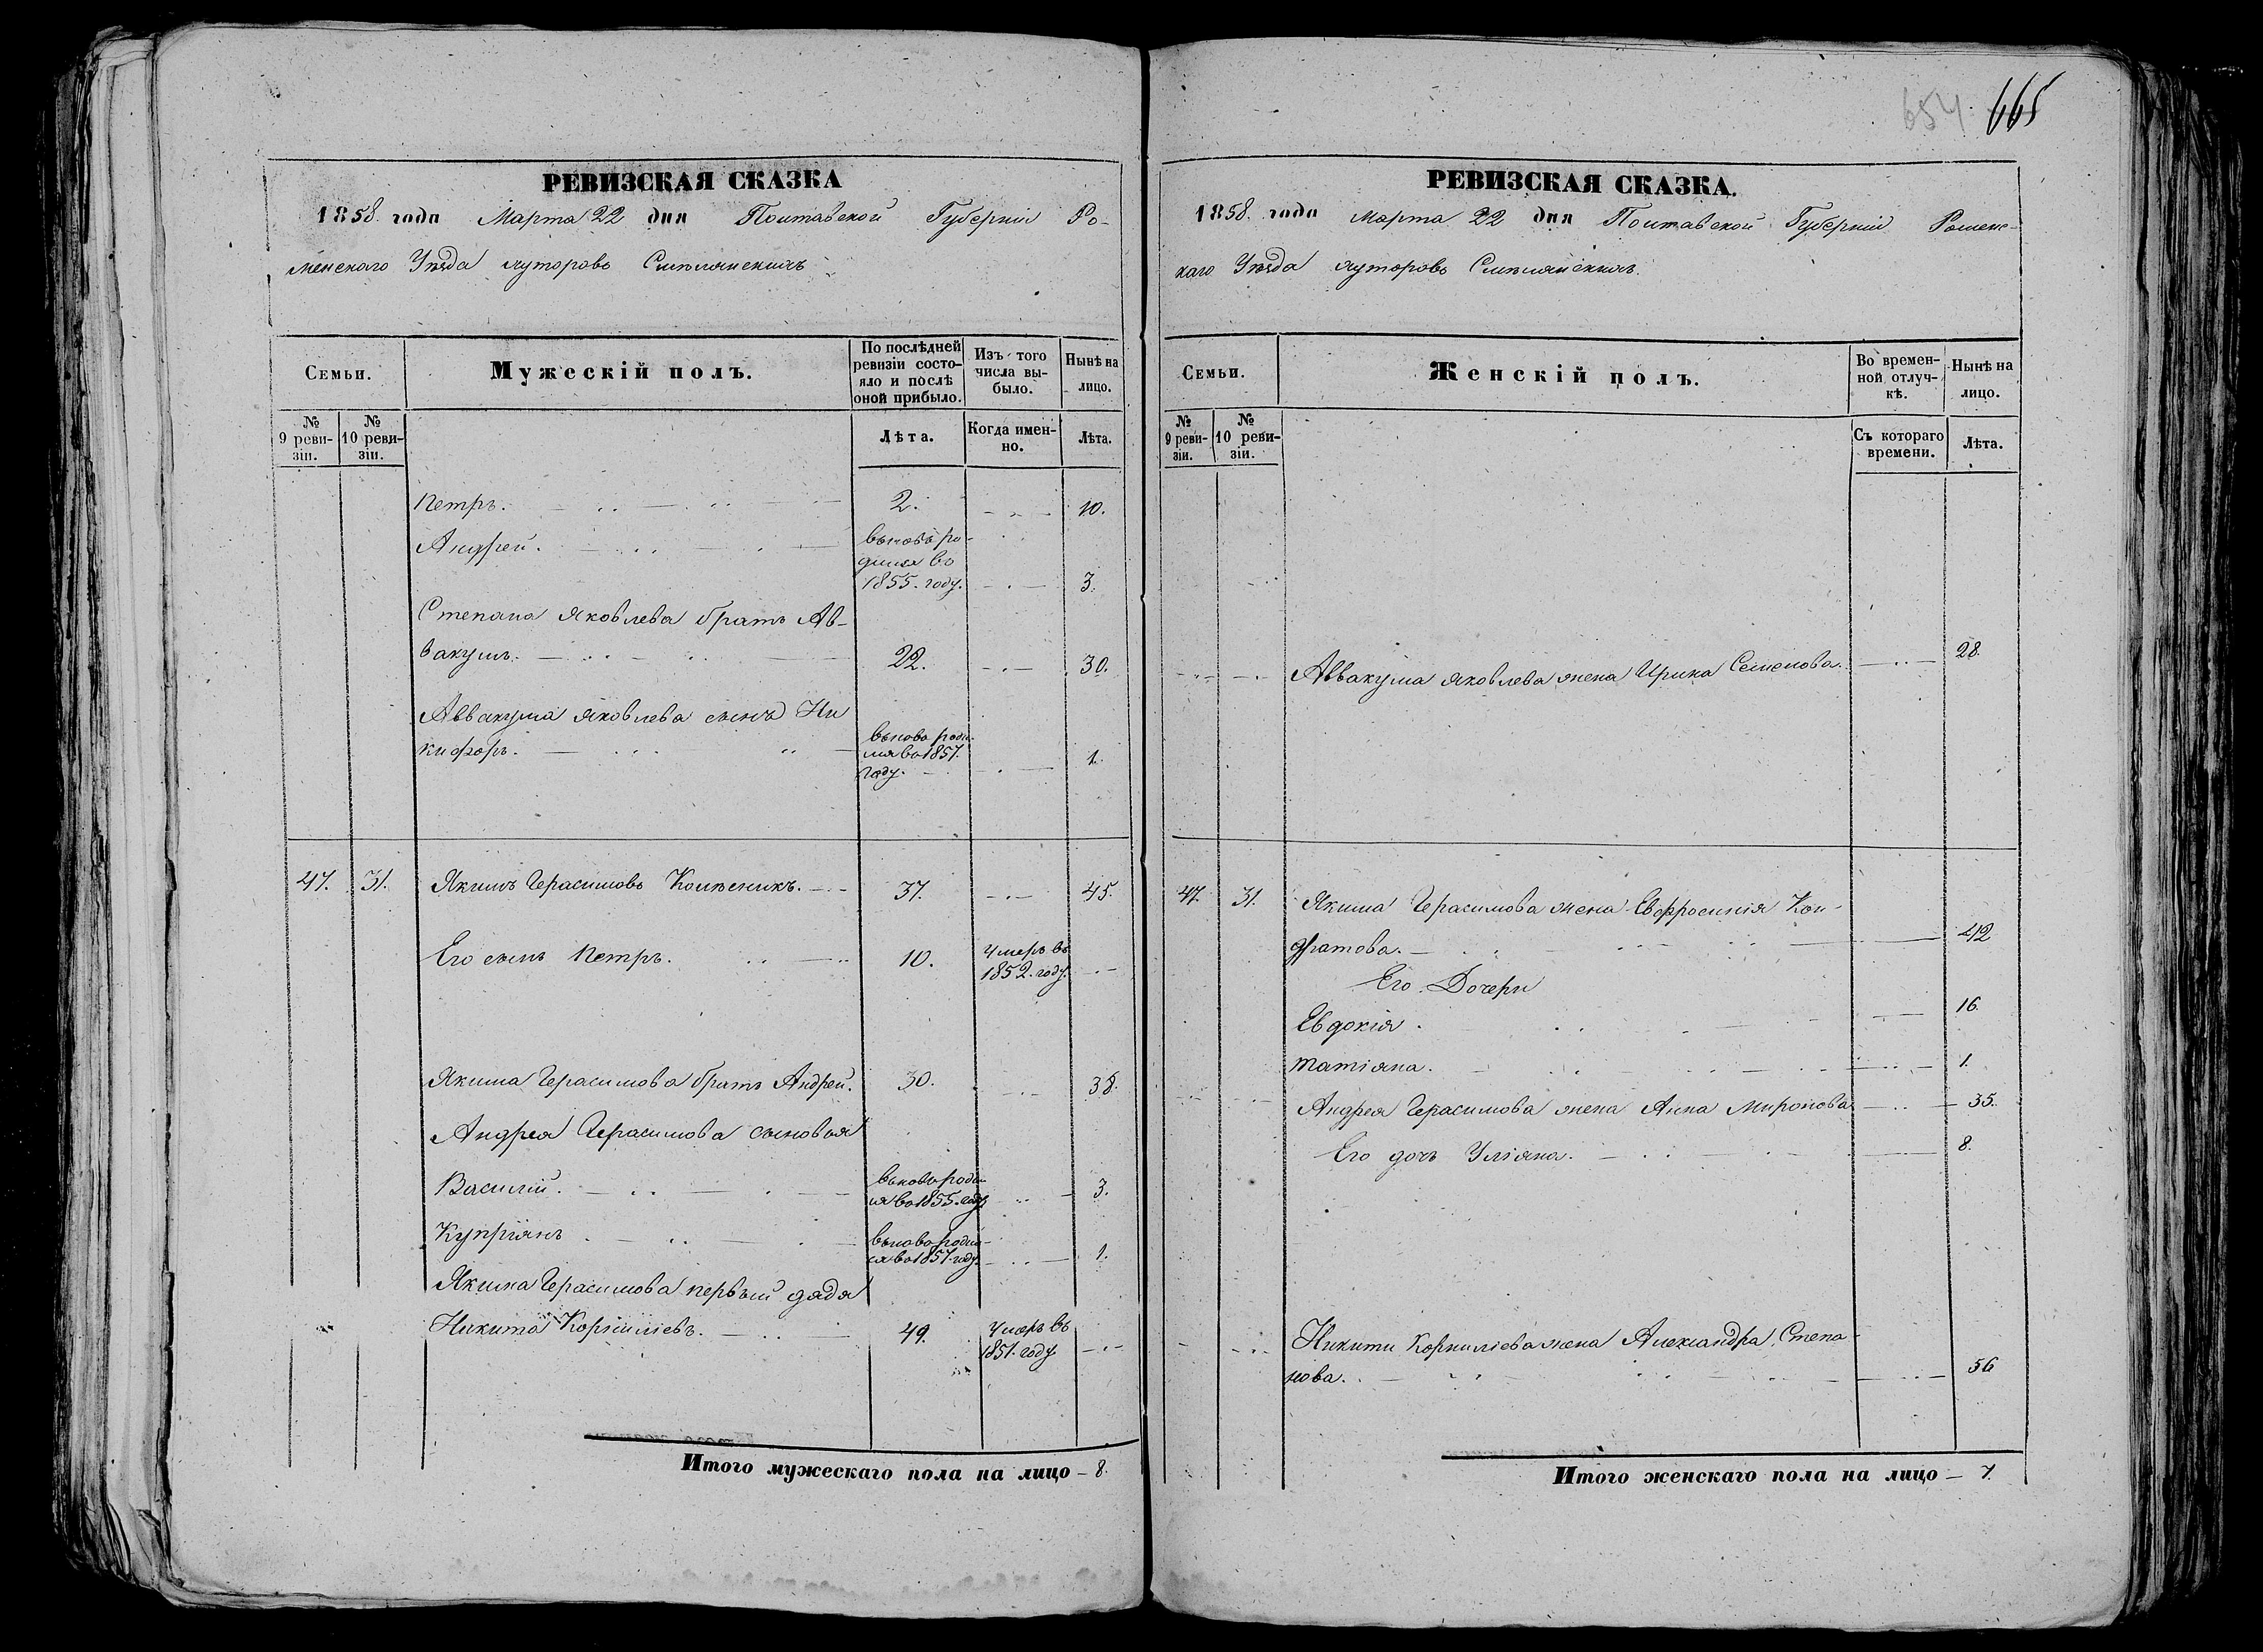 654. 665
РЕВИЗСКАЯ СКАЗКА
1858. года Марта 22 дня Полтавской Губерніи Ро-
менскаго Уѣзда хуторовъ
Семьи.
Мужескій полъ.
По послѣдней ревизіи состо-яло и послѣ оной прибыло.
Изъ того числа вы-было.
Нынѣ на лицо.
№ 9 реви-зіи.
№ 10 реви-зіи.
Лѣта.
Когда имен-но.
Лѣта.
Петръ. 2. 10.
Андрей. вновь ро-
дился въ
1855. году. 3.
Степана Яковлева братъ Ав-
вакумъ. 22. 30.
Аввакума Яковлева сынъ Ни
кифоръ. вновь роди-
лся въ 1857.
году. 1.
47. 31. Якимъ Герасимовъ 37. 45.
Его сынъ Петръ. 10. Умеръ въ
1852. году.
Якима Герасимова братъ Андрей. 30. 38.
Андрея Герасимова сыновья
Василій. вновь роди
ся въ 1855. году 3.
Купріянъ вновь родил-
ся въ 1857. году 1.
Якима Герасимова первый дядя
Никита Корниліевъ. 49. Умеръ въ
1851. году.
Итого мужескаго пола на лицо – 8.
РЕВИЗСКАЯ СКАЗКА.
1858. года Марта 22 дня Полтавской Губерніи Роменс-
каго Уѣзда хуторовъ
Семьи.
Женскій полъ.
Во времен-ной отлуч-кѣ.
Нынѣ на лицо.
№ 9 реви-зіи.
№ 10 реви-зіи.
Съ котораго времени.
Лѣта.
Аввакума Яковлева жена Ирина Семенова. 28.
47. 31. Якима Герасимова жена Евфросинія Кон-
дратова. 42
Его Дочери
Евдокія. 16.
Татіяна. 1.
Андрея Герасимова жена Анна Миронова 35.
Его дочь Уліяна. 8.
Никиты Корниліева жена Александра Степа-
нова. 56
Итого женскаго пола на лицо – 7.